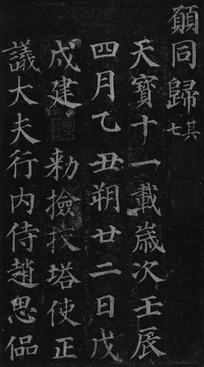 願同歸其七
天寶十一載歲次壬辰
四月乙丑朔廿二日戊
戌建 勑撿挍塔使正
議大夫行内侍趙思侶